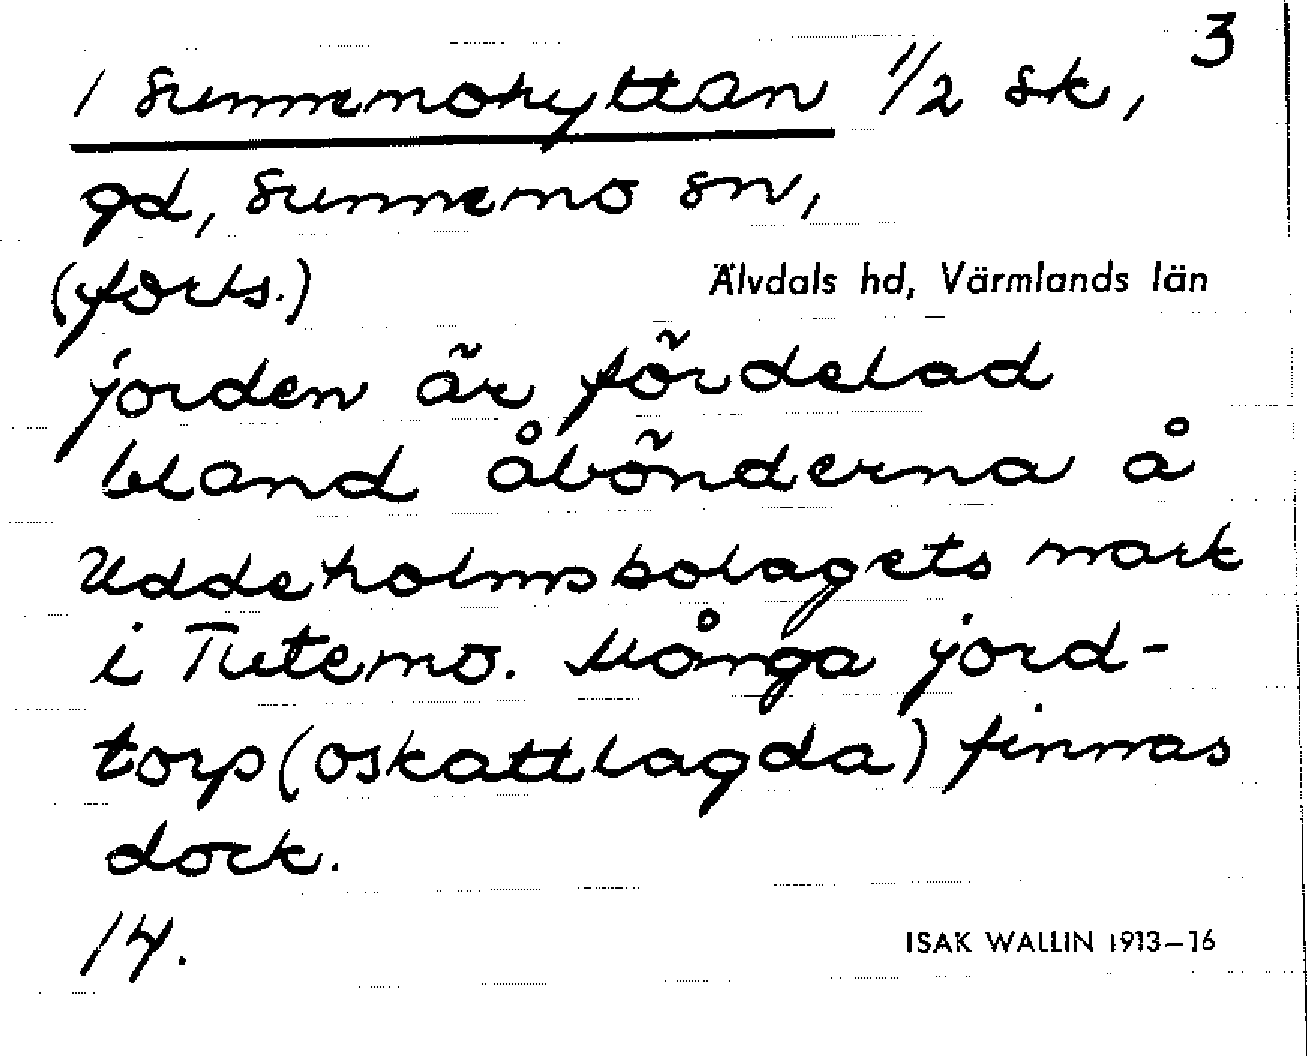 3
1 Sunnemohyttan 1/2 sk,
gd, Sunnemo sn,
(forts.)
Älvdals hd, Värmlands län
jorden är fördelad
bland åbönderna å
Uddeholmsbolagets mark
i Tutemo. Många jord-
torp (oskattlagda) finnas
dock.
14.
ISAK WALLIN 1913-16